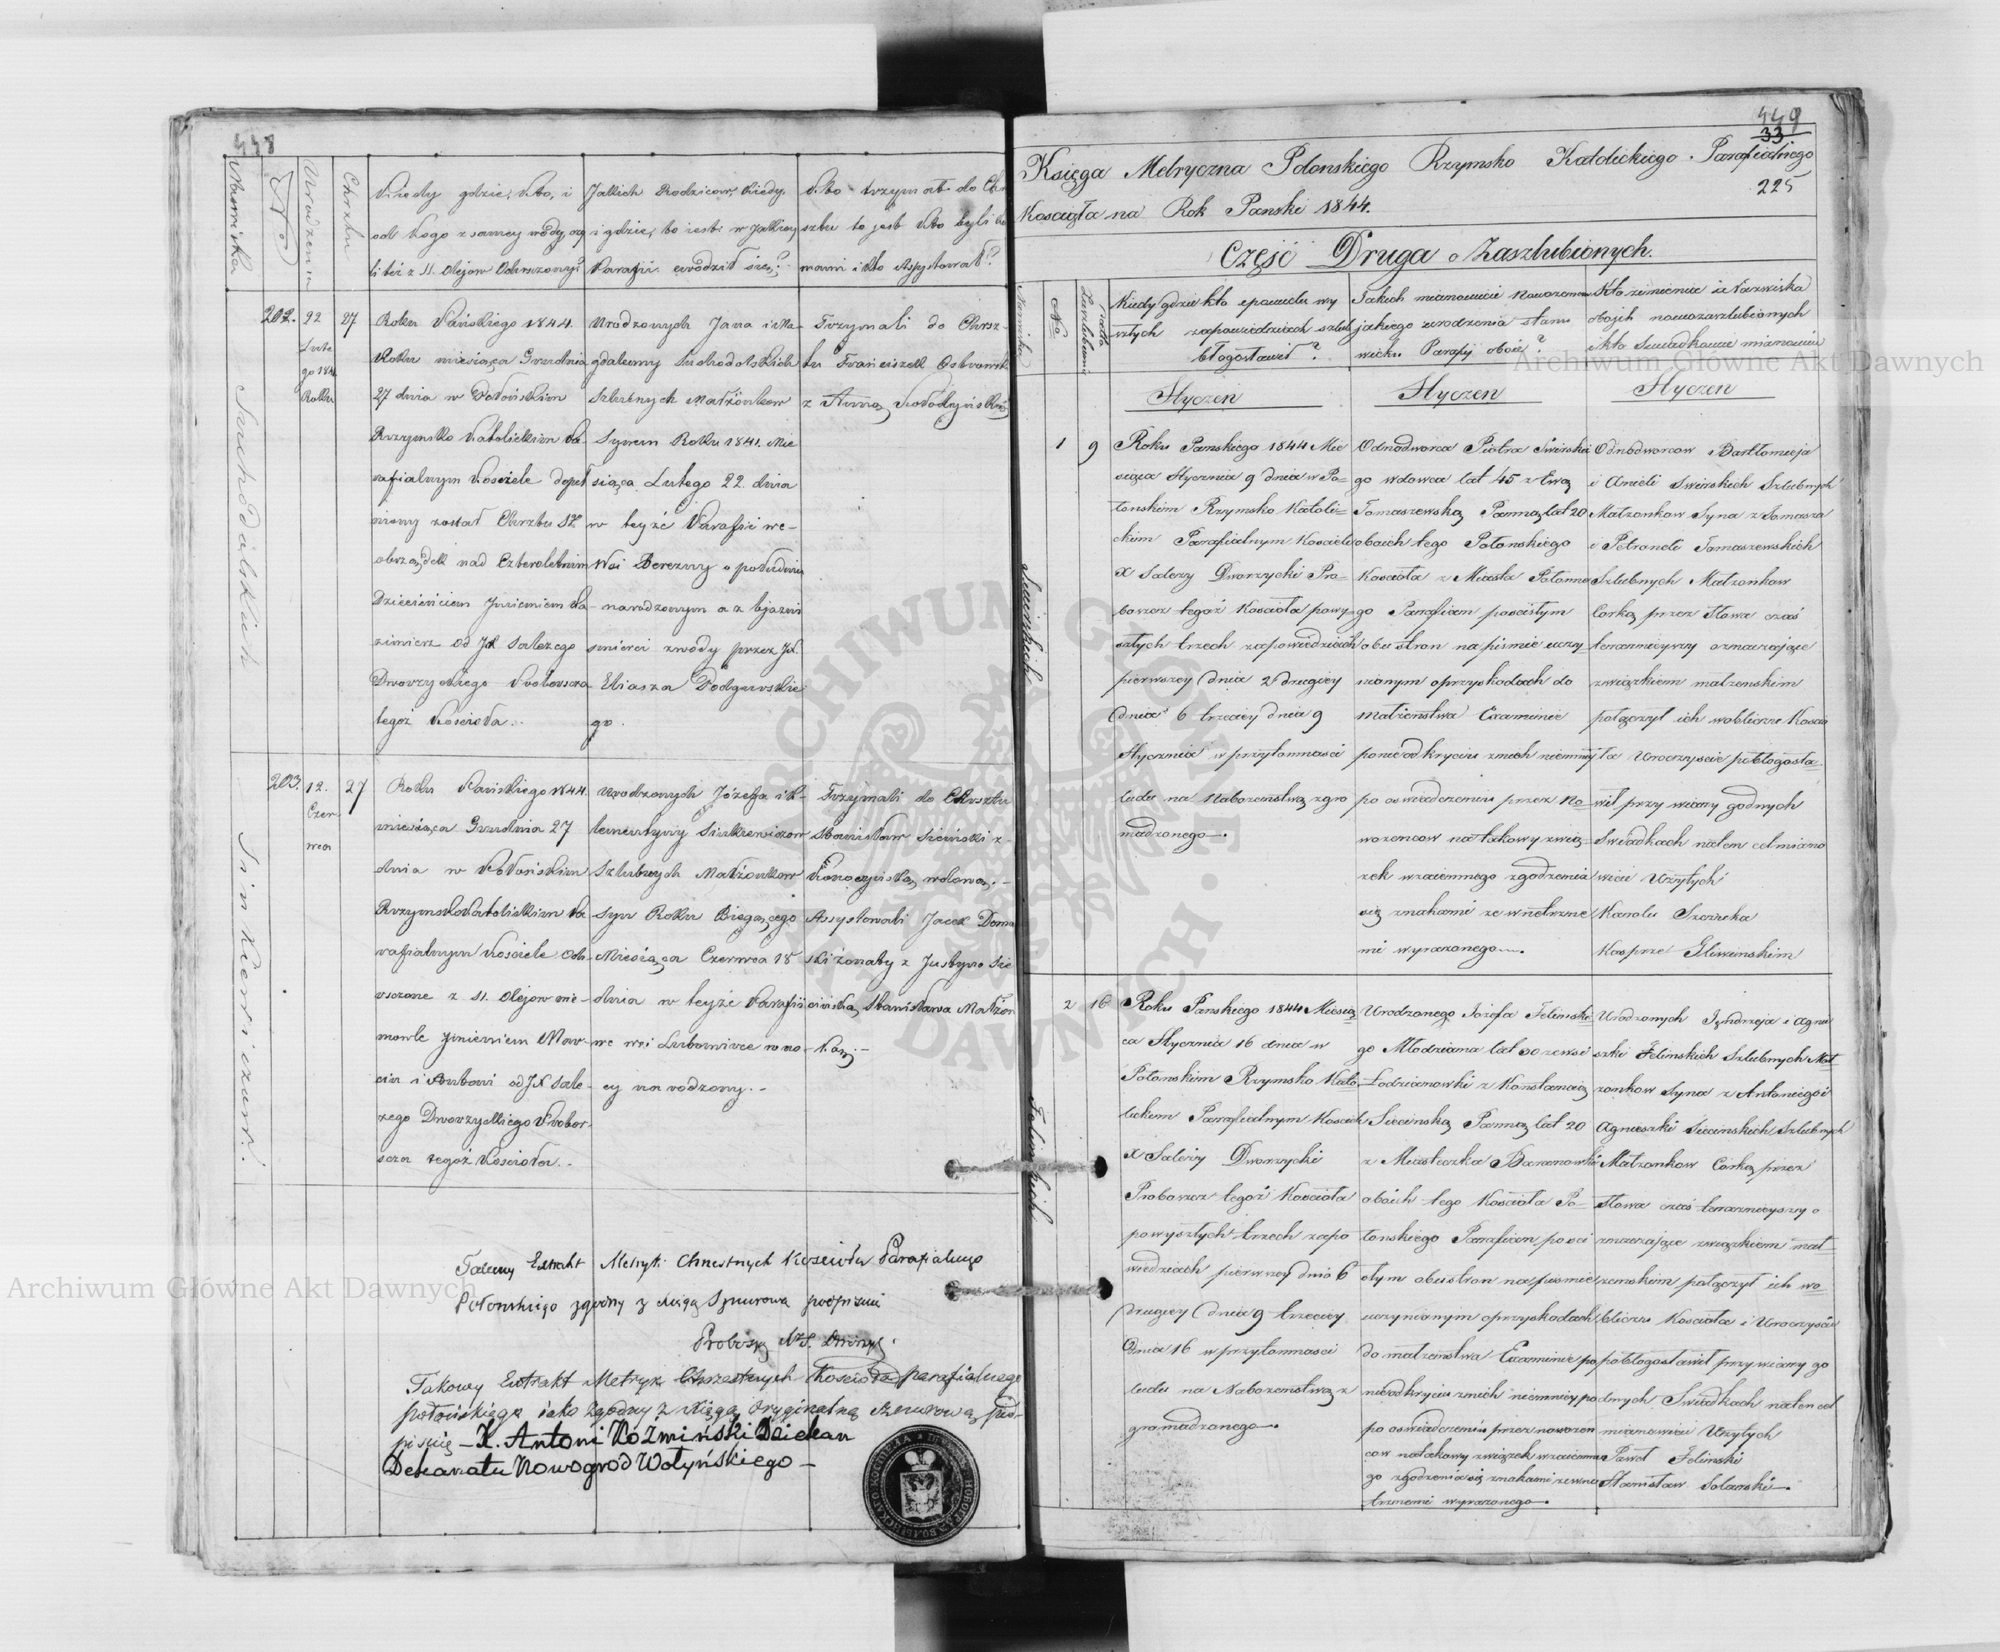 448
Nazwiska
No
Urodzenia
Chrztu
Kiedy gdzie, Kto, i
od Kogo z samey wody czy
li też z SS. Olejow Ochrzczony?
Jakich Rodzicow, kiedy
i gdzie, to jest: w jakiey
Parafii urodził się?
Kto trzymał do Chrz
sztu to jest Kto byli Ku
mami i kto Assystował?
Suchodolskich
202.
22
Lute
go 184
Roku
27
Roku Pańskiego 1844.
Roku miesiąca Grudnia
27 dnia w Połońskim
Rzymsko Katolickim Pa-
rafialnym Kosciele dopeł
niony został Chrztu Sgo
obrządek nad Czteroletnim
Dziecięciem Jmieniem Ka-
zimierz od JX Salezego
Dworzyckiego Proboszcza
tegoż Kościoła.
Urodzonych Jana i Ma-
gdaleny Suchodolskich
Szlubnych Małżonkow
Synem Roku 1841. Mie
siąca Lutego 22. dnia
w teyże Parafii we-
Wsi Berezny o południu
narodzonym a z bojazni
smierci z wody przez JX.
Eliasza Podgurskie
go.
Trzymali do Chrsz-
tu Franciszek Ostrowsk
z Anną Kołodyńską
Sinkiewiczow.
203.
12.
Czer
wca
27
Roku Pańskiego 1844.
miesiąca Grudnia 27
dnia w Połońskim
Rzymsko Katolickim Pa
rafialnym Kosciele Och-
rszczone z SS. Olejow nie-
mowle jmieniem
od JX Sale-
zego Dworzyckiego Probosz-
scza tegoż Kościoła.
Urodzonych Józefa i K-
lementyny Sinkiewiczow
Szlubnych Małżonkow
Syn Roku Bieżącego
Miesiąca Czerwca 15
dnia w teyże Parafii
we wsi w no-
cy narodzony.
Trzymali do Chrsztu
Stanisław Siciński z
wdową.
Assystowali Jacek Doma
ski żonaty z Justyno Sie
cińską Stanisława Małżon
ką.
Takowy Extrakt Metryk Chrestnych Kościoła Parafialnego
Połonskiego zgodny z xięgą Sznurową podpisuię
Takowy Extrakt Metryk Chrzestnych Kościoła parafialnego
połońskiego iako zgodny z Xięgą oryginalną sznurową pod-
pisuię – X. Antoni Koźmiński Dziekan
Dekanatu Nowogrod Wołyńskiego –
449
33
225
Księga Metryczna Polonskiego Rzymsko Katolickiego Parafialnego
Kosciøła na Rok Panski 1844.
Część Druga o Zaszlubionych.
Nazwiska
No
Data
Zaszlubienia
Kiedy gdzie kto i po wielu wy
szłych zapowiedziach szlub
błogosławił?
Jakich mianowicie Nowożenców
jakiego urodzenia stanu
wieku Parafij oboie?
Kto z imienia i z Nazwiska
oboych nowozaszlubionych
i kto Swiadkowie mianowicie
Styczen
Styczen
Styczen
Swirskich
1
9
Roku Panskiego 1844 Mie
siąca Stycznia 9 dnia w Po-
łonskim Rzymsko Katoli-
ckim Parafialnym Kosciele
X Salezy Dworzycki Pro-
boszcz tegoż Kosciøła powy-
szłych trzech zapowiedziach
pierwszey dnia 2 drugiey
dnia 6 trzeciey dnia 9
Stycznia w przytomnosci
ludu na Nabozenstwo zgro
madzonego.
Odnodworca Piotra Swirskie
go wdowca lat 45 z Ewą
Tomaszewską Panną lat 20
oboich tego Połonskiego
Kosciøła z Miasta Połonne
go Parafian poscisłym
obu stron na pismie uczy-
nionym o przyskodach do
Małżenstwa Examinie
ponieodkryciu znich niemniey
po oswiadczeniu przez No-
wozencow natakowy zwią-
zek wzaiemnego zgodzenia
się znakami ze wnetrzne
mi wyrazonego.
Odnodworcow Bartłomieja
i Anieli Swirskich Szlubnych
Małzonkow Syna z Tomasza
i Petroneli Tomaszewskich
Szlubnych Małzonkow
Corką przez Słowa czas
terazniejszy oznaczające
związkiem małzenskim
połączył ich wobliczu Koscio
ła Uroczyscie pobłogosła-
wił przy wiary godnych
Swiadkach naten cel miano
wicie Użytych
Karolu
Kasprze
Felinskich
2
16
Roku Panskiego 1844 Miesią
ca Stycznia 16 dnia w
Połonskim Rzymsko Kato-
lickim Parafialnym Kosciele
X Salezy Dworzycki
Proboszcz tegoż Kosciøła
powyszłych trzech zapo
wiedziach pierwszey dnia 6
Drugiey dnia 9 trzeciey
dnia 16 w przytomnosci
ludu na Nabozenstwo z
gromadzonego.
Urodzonego Józefa Felinskie
go Młodziana lat 30 zewsi
Łodzianowki z Konstancią
Siecinską Panną lat 20
z Miasteczka Baranowki
oboich tego Kosciøła Po-
łonskiego Parafian, po sci
słym obustron na pismie
uczynionym o przyskodach
do małzenstwa Examinie po
nieodkryciu znich niemniey
po oswiadczeniu przez nowozen
cow natakowy związek wzaiemne
go zgodzenia się znakami zewnę
trznemi wyrazonego.
Urodzonych Jędrzeja i Agni
szki Felinskich Szlubnych Mał
zonkow Syna z Antoniego i
Agnieszki Siecinskich Szlubnych
Małzonkow Corką przez
Słowa czas terazniejszy o
znaczające związkiem mał-
zenskim połączył ich wo-
bliczu Kosciøła i Uroczyscie
pobłogosławił przy wiary go
dnych Swiadkach naten cel
mianowicie Użytych
Paweł Felinski
Stanisław Solarski.
Archiwum Główne Akt Dawnych
Archiwum Główne Akt Dawnych
ARCHIWUM GŁÓWNE AKT DAWNYCH